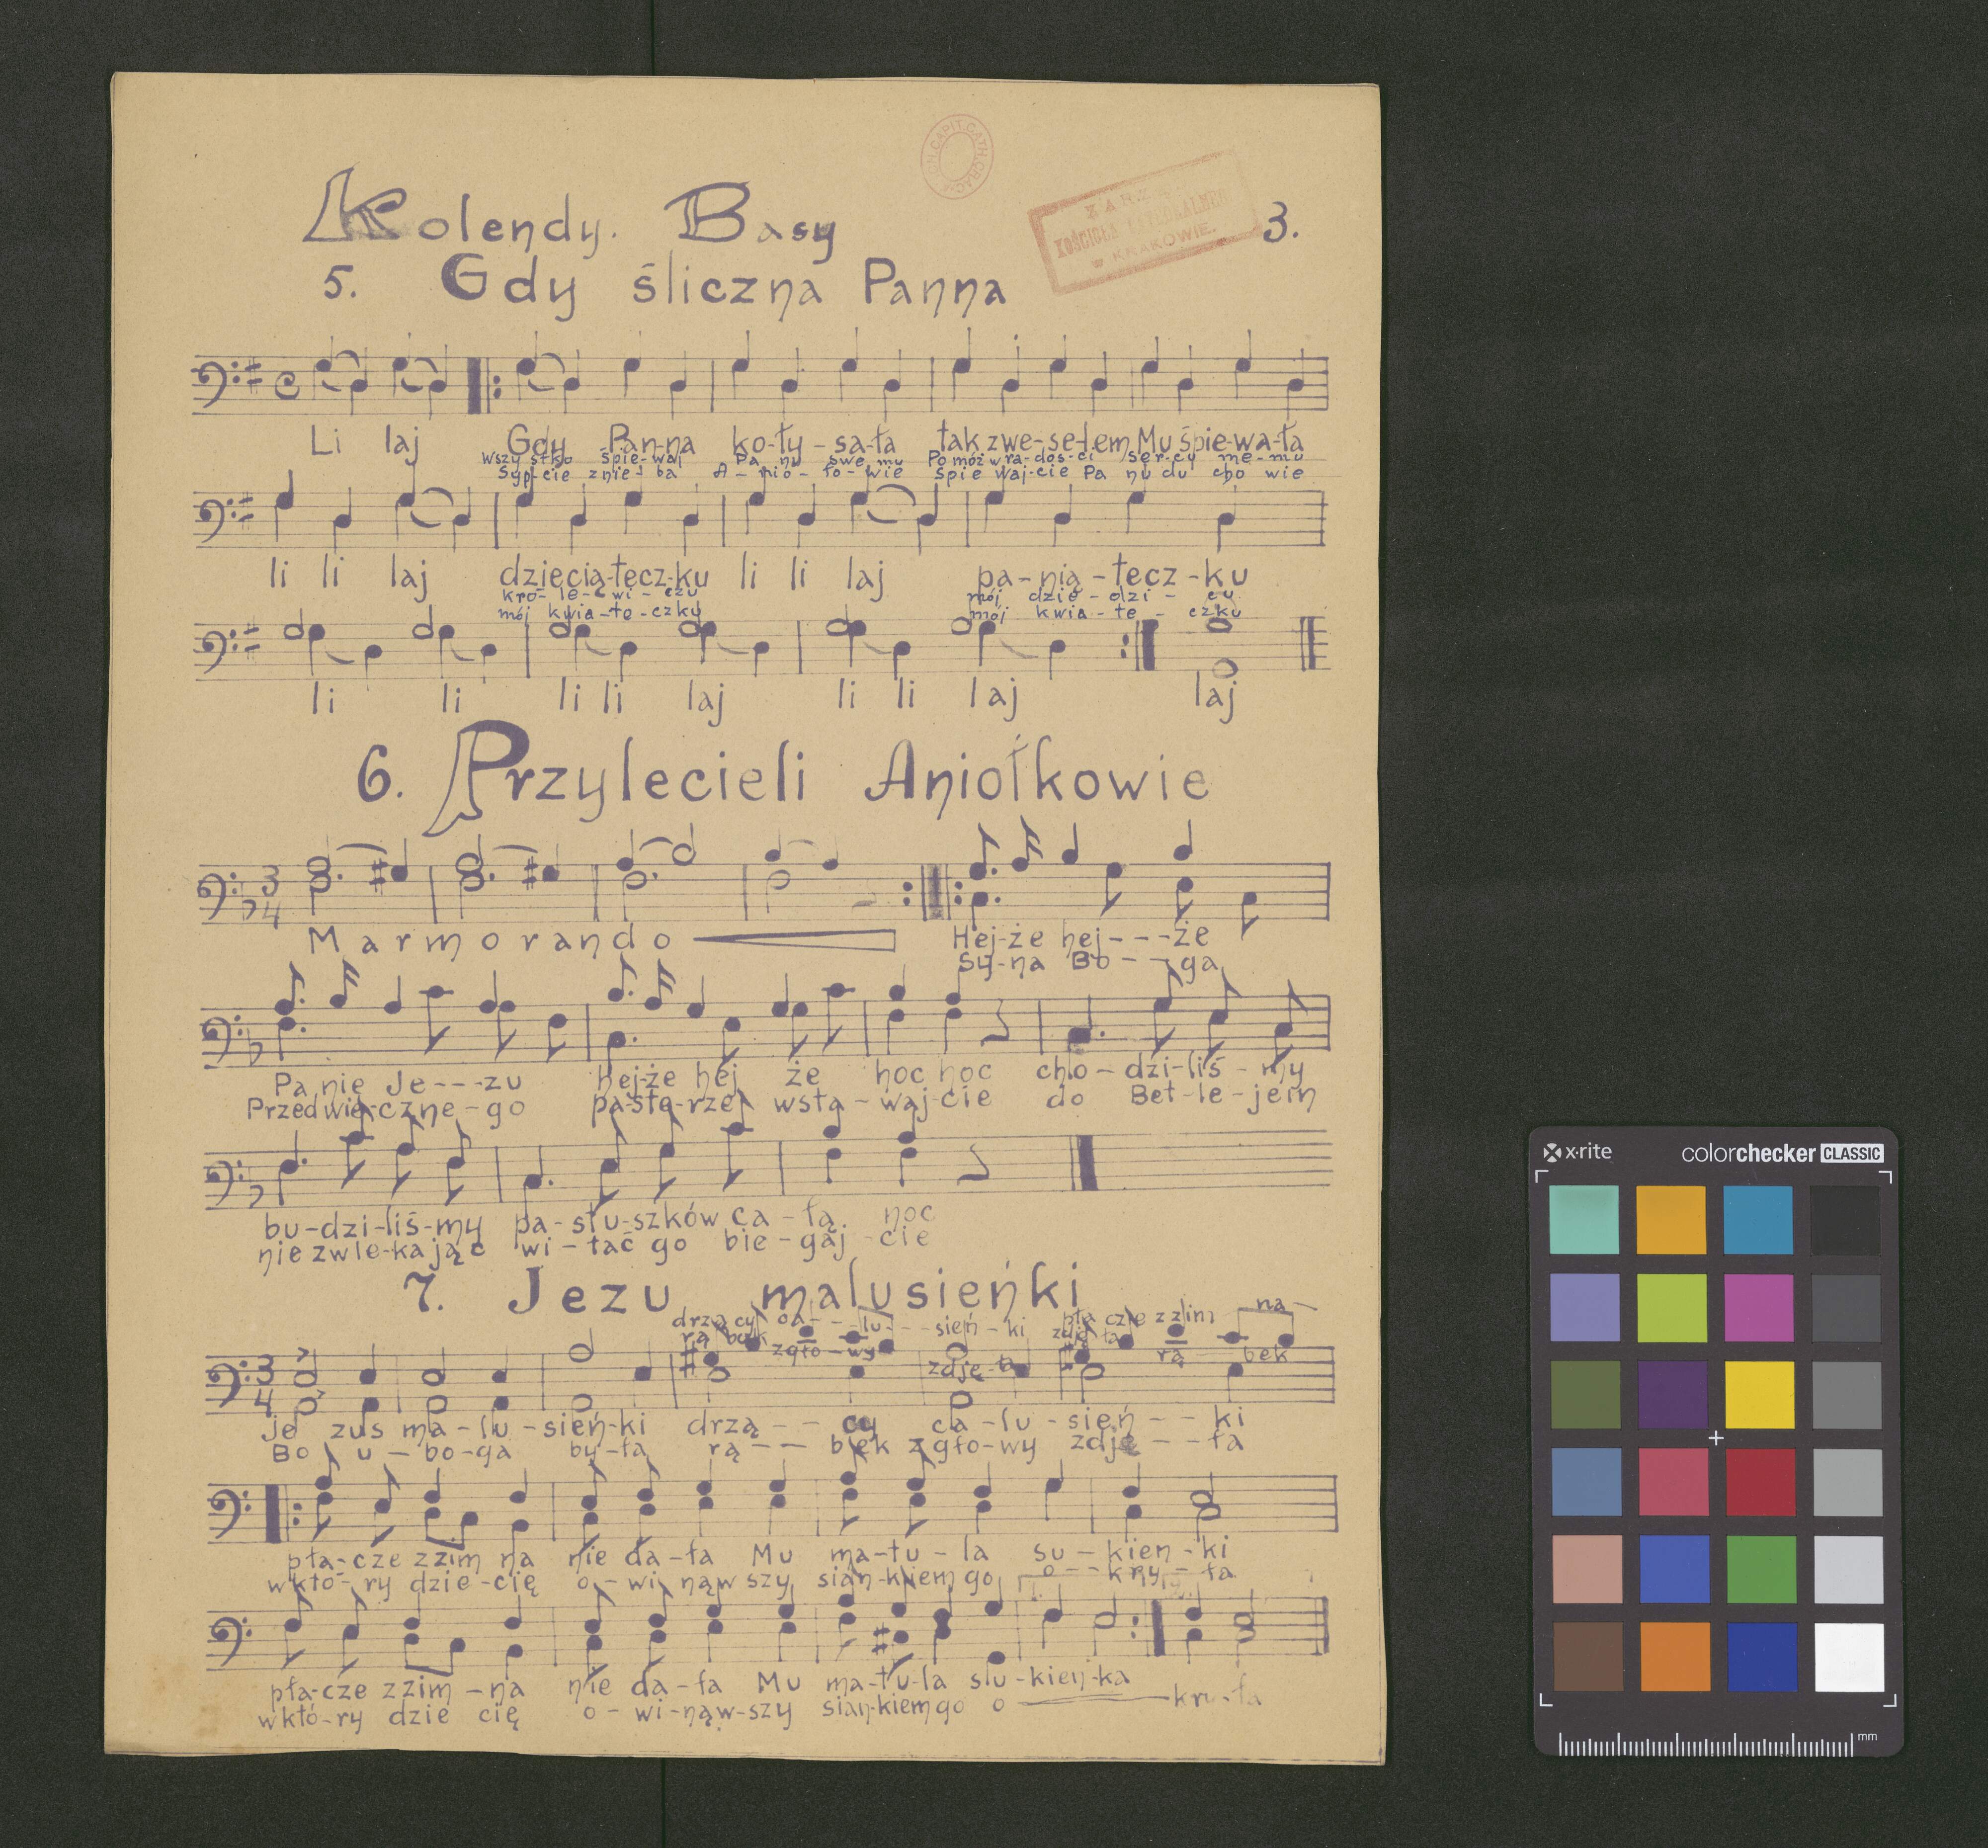 ARCH. CAPIT. CATH. CRAC.
Kolendy. Basy
KOŚCIOŁA KATEDRALNEGO
W KRAKOWIE.
3.
5. Gdy śliczna Panna
Li laj Gdy Pan-na ko-ły-sa-ła tak zwe-se-lem Mu śpie-wa-ła
Wszystko śpie-waj Pa-nu swe-mu Pomóż w ra-dos-ci ser-cu me-mu
Syp-cie znie-ba A-nio-ło-wie śpie waj-cie Pa nu du cho wie
li li laj dziecią-tecz-ku li li laj pa-nią-tecz-ku
kró-le-wi-czu mój dzie-dzi-cu
mój kwia-te-czku mój kwia-te-czku
li li li li laj li li laj laj
6. Przylecieli Aniołkowie
3
4
Marmorando
Hej-że hej---że
Sy-na Bo--ga
Panie Je---zu hej-że hej że hoc hoc cho-dzi-liś-my
Przedwie-czne-go pa-ste-rze wsta-waj-cie do Bet-le-jem
bu-dzi-liś-my pa-stu-szków ca-łą noc
nie zwle-kając wi-tać go bie-gaj-cie
7. Jezu malusieńki
drzą cy ca---lu---sień-ki pła cze z zim na-
rą bek z gło-wy zdję-ła zdję ła rą bek
3
4
Je zus ma-lu-sień-ki drzą-- cy ca-lu-sień--ki
Bo u-bo-ga by-ła rą-- bek z gło-wy zdję--ła
pła-cze z zim na nie da-ła Mu ma-tu-la su-kien-ki
w któ-ry dzie-cię o-wi nąw szy sian-kiem go o--kry-ła
pła-cze z zim-na nie da-ła Mu ma-tu-la su-kien-ka
w któ-ry dzie cię o-wi-nąw-szy sian-kiem go o kry-ła
x·rite colorchecker CLASSIC
mm